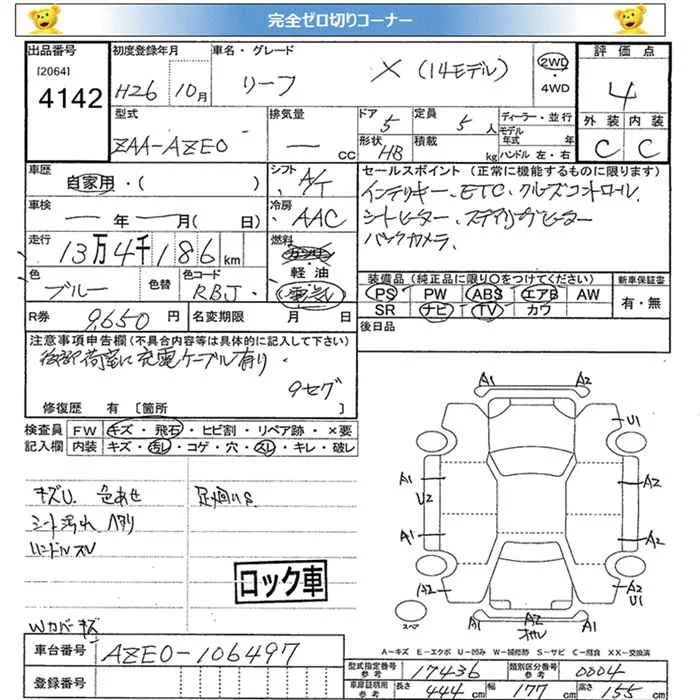 完全ゼロ切りコーナー
出品番号 初度登録年月 車名・グレード 評価点
[2064]
4142
H26 10月 リーフ X (14モデル) 2WD・4WD 4
型式 排気量 ドア 定員 ディーラー・並行 外装 内装
ZAA-AZE0 — CC 5 5人 モデル年式 年 C C
形状 積載 ハンドル 左・右
HB kg
車歴 シフト セールスポイント (正常に機能するものに限ります)
自家用・( ) A/T インテリキー、ETC、クルーズコントロール、
車検 冷房 シートヒーター、ステアリングヒーター
— 年 — 月( 日) AAC バックカメラ、
走行 燃料
13万4千186km ガソリン
軽油
電気
色 色替 色コード 装備品 (純正品に限り〇をつけてください) 新車保証書
ブルー RBJ PS PW ABS エアB AW 有・無
SR ナビ TV カワ
R券 9,650円 名変期限 月 日 後日品
注意事項申告欄(不具合内容等は具体的に記入して下さい)
後部荷室に充電ケーブル有り
9セグ
修復歴 有 [箇所
検査員 FW キズ・飛石・ヒビ割・リペア跡・×要
記入欄 内装 キズ・汚レ・コゲ・穴・スレ・キレ・破レ
キズU. 色あせ 足廻りS.
シート汚れ ヘタリ
ハンドルスレ
ロック車
Wカバーキズ
A1 A2
U1
A1 A2
U2
A1 A2
A2 A2
U1
A1 A2 A1
スペア
A-キズ E-エクボ U-凹み W-補修跡 S-サビ C-腐食 XX-交換済
車台番号 AZE0-106497
型式指定番号 参考 17436 類別区分番号 参考 0004
登録番号 車庫証明用 参考 長さ 444cm 幅 177cm 高さ 155cm